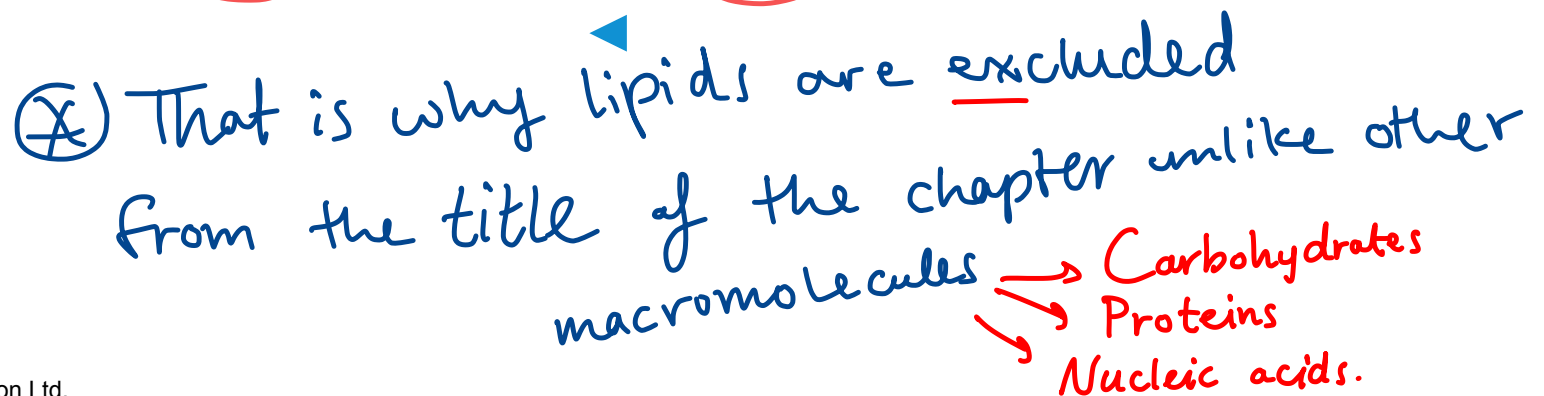 That is why lipids are excluded
from the title of the chapter unlike other
macromolecules → Carbohydrates
→ Proteins
→ Nucleic acids.
on Ltd.